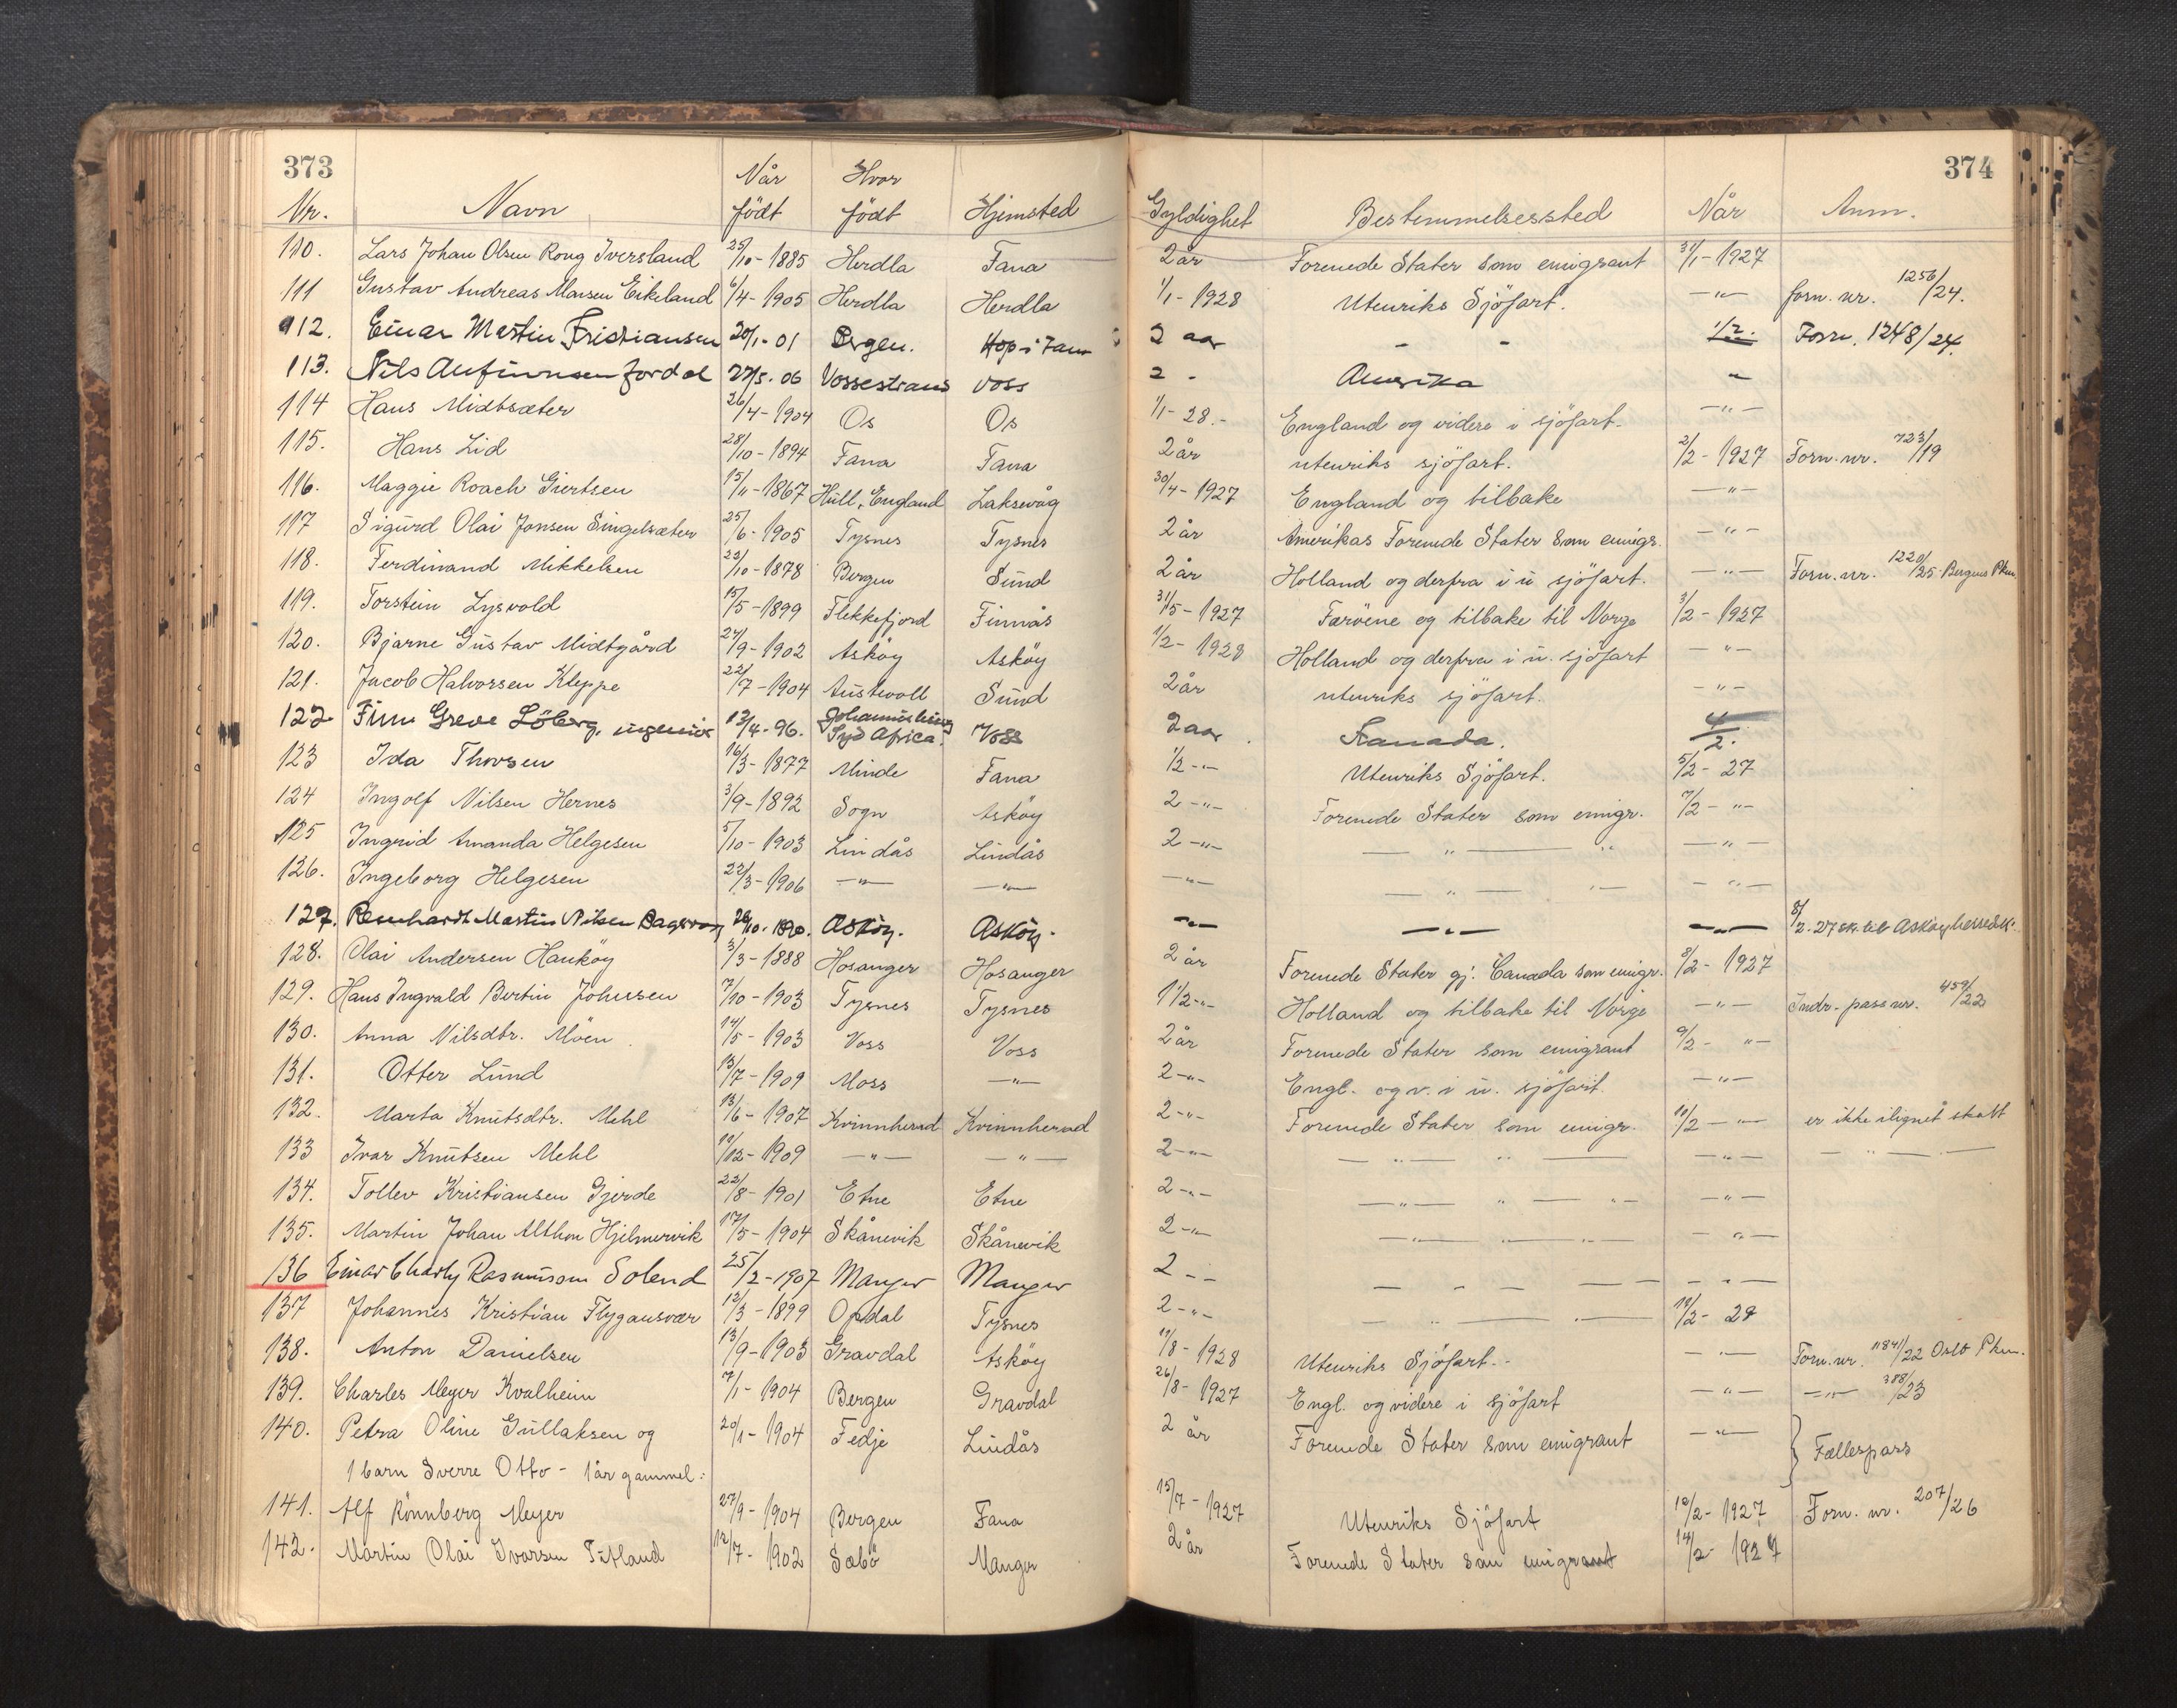 373
374
Nr. Navn Når født Hvor født Hjimsted Gyldighet Bestemmelsessted Når Anm.
110. Lars Johan Olsen Rong Iversland 25/10-1885 Herdla Fana 2 år Forenede Stater som emigrant 31/1-1927
111 Gustav Andreas Monsen Eikeland 6/4-1905 Herdla Herdla 1/1-1928 Utenriks Sjöfart. -"- forn. nr. 1256/24.
112. Einar Martin Kristiansen 20/1-01 Bergen. Hop i Fana 2 aar - - 1/2. Forn. 1248/24.
113. Nils Anfinnsen Jordal 27/5.06 Vossestrand Voss 2 - Amerika "
114 Hans Midtsæter 26/4-1904 Os Os 1/1-28.- England og videre i sjöfart. -"-
115. Hans Lid 28/10-1894 Fana Fana 2 år utenriks sjöfart. 2/2-1927 Forn. nr. 723/19
116. Maggie Roach Giertsen 15/11-1867 Hull, England Laksevåg 30/4-1927 England og tilbake -"-
117 Sigurd Olai Jonsen Singelsæter 25/6-1905 Tysnes Tysnes 2 år Amerikas Forenede Stater som emigr. -"-
118. Ferdinand Mikkelsen 23/10-1878 Bergen Sund 2 år Holland og derfra i u sjöfart. -"- Forn. nr. 1220/25 Bergens Pkm
119. Torstein Lysvold 15/5-1899 Flekkefjord Finnås 31/5-1927 Færöene og tilbake til Norge 3/2-1927
120. Bjarne Gustav Midtgård 27/9-1902 Asköy Asköy 1/2-1928 Holland og derfra i u. sjöfart -"-
121. Jacob Halvorsen Kleppe 22/7-1904 Austevoll Sund 2 år utenriks sjöfart. -"-
122. Finn Greve Löberg, ingeniör 13/4-96. Johannisburg Syd Africa. Voss 2 aar. Kanada. 4/2.
123 Ida Thorsen 16/3-1877 Minde Fana 1/2-"- Utenriks Sjöfart. 5/2-27
124 Ingolf Nilsen Hernes 3/9-1892 Sogn Asköy 2-"- Forenede Stater som emigr. 7/2-"-
125 Ingrid Amanda Helgesen 5/10-1903 Lindås Lindås 2-"- -"- " -"-
126. Ingeborg Helgesen 22/3-1906 -"- -"- -"- -"- "- -"-
127. Reinhardt Martin Nilsen 28/10.1890. Asköy. Asköy. -"- -"- -"- 8/2.27 sk. til Asköy
128. Olai Andersen Hanköy 3/3-1888 Hosanger Hosanger 2 år Forenede Stater gj. Canada som emigr. 8/2-1927
129. Hans Ingvald Bertin Johnsen 7/10-1903 Tysnes Tysnes 1 1/2-"- Holland og tilbake til Norge -"- Indr. pass nr. 459/22
130. Anna Nilsdtr. Möen 14/5-1903 Voss Voss 2 år Forenede Stater som emigrant 9/2-"-
131. Otter Lund 13/7-1909 Moss -"- 2-"- Engl. og v. i u. sjöfart. -"-
132. Marta Knutsdtr. Mehl 13/6-1907 Kvinnherad Kvinnherad 2-"- Forenede Stater som emigr. 10/2-"- er ikke ilignet skatt
133 Ivar Knutsen Mehl 10/12-1909 -"- -"- 2-"- -"- " -"- -"-
134. Tollev Kristiansen Gjerde 22/8-1901 Etne Etne 2-"- -"- " "- -"-
135. Martin Johan Althon Hjelmervik 17/5-1904 Skånevik Skånevik 2-"- -"- "- -"-
136 Einar Charly Rasmusson Solend 25/2-1907 Manger Manger 2 - - - - - - - -
137 Johannes Kristian Flygansvær 12/3-1899 Opdal Tysnes 2-"- - " "- 12/2-28
138. Anton Danielsen 13/9-1903 Gravdal Asköy 11/8-1928 Utenriks Sjöfart.- -"- Forn. nr. 11841/22 Oslo Pkm.
139. Charles Meyer Kvalheim 7/1-1904 Bergen Gravdal 26/8-1927 Engl. og videre i sjöfart -"- -"- 388/23
140. Petra Oline Gullaksen og 20/1-1904 Fedje Lindås 2 år Forenede Stater som emigrant -"- } Fællespass
1 barn Sverre Otto - 1 år gammel:
141. Alf Rönnberg Meyer 27/9-1904 Bergen Fana 15/7-1927 Utenriks Sjöfart 12/2-1927 Forn. nr. 207/26
142. Martin Olai Ivarsen Titland 12/7-1902 Sæbö Manger 2 år Forenede Stater som emigrant 14/2-1927